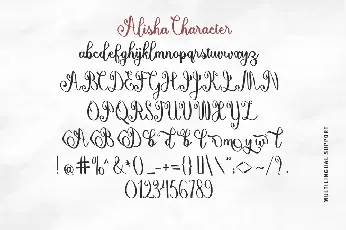 Alisha Character
abcdefghijklmnopqrstuvwxyz
ABCDEFGHIJKLMN
OPQRSTUVWXYZ
!@#%^&*()_-+={}[]|\\":;<>~/?.
0123456789
MULTILINGUAL SUPPORT